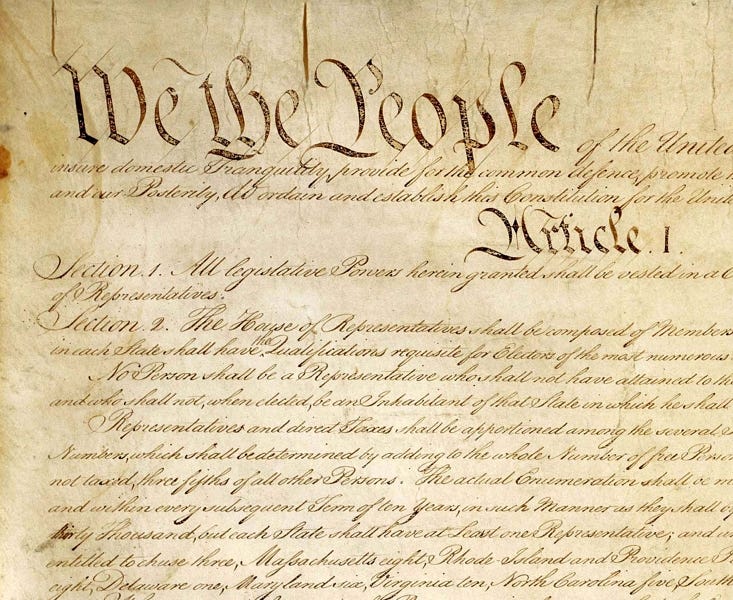 We the People of the United
insure domestic Tranquility, provide for the common defence, promote
and our Posterity, do ordain and establish this Constitution for the Unite
Article. I.
Section. 1. All legislative Powers herein granted shall be vested in a
of Representatives.
Section. 2. The House of Representatives shall be composed of Members
in each State shall have the Qualifications requisite for Electors of the most numerous
No Person shall be a Representative who shall not have attained to the
and who shall not, when elected, be an Inhabitant of that State in which he shall
Representatives and direct Taxes shall be apportioned among the several
Numbers, which shall be determined by adding to the whole Number of free Perso
not taxed, three fifths of all other Persons. The actual Enumeration shall be m
and within every subsequent Term of ten Years, in such Manner as they shall by
thirty Thousand, but each State shall have at Least one Representative; and un
entitled to chuse three, Massachusetts eight, Rhode-Island and Providence P
eight, Delaware one, Maryland six, Virginia ten, North Carolina five, South